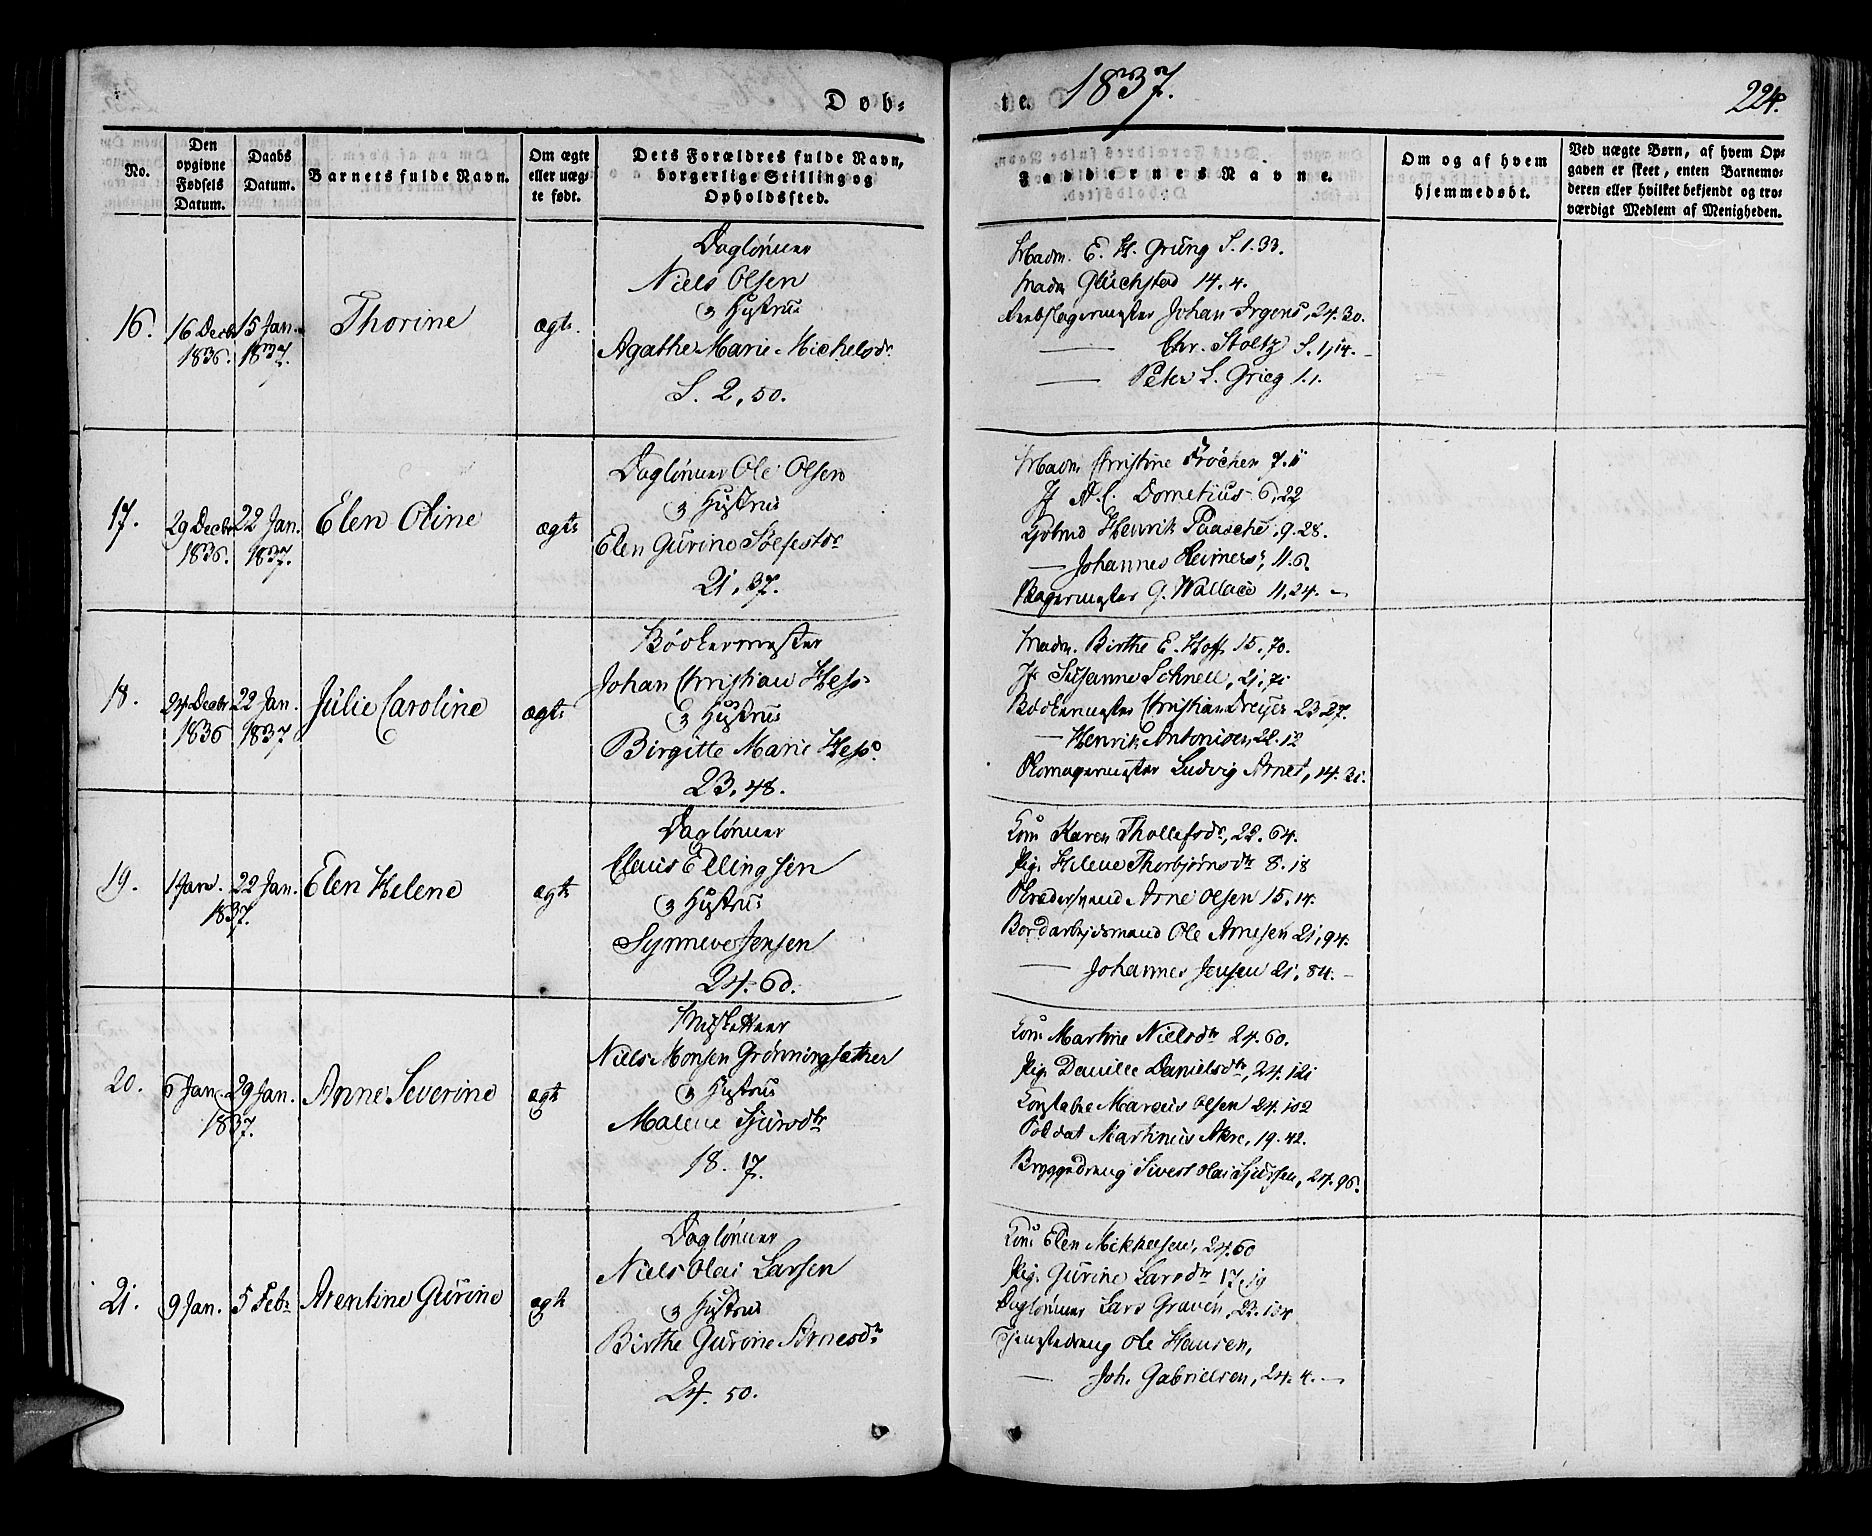 Døb=
te.
1837.
224.
No.
Den opgivne Fødsels Datum.
Daabs Datum.
Barnets fulde Navn.
Om ægte eller uæg- te født.
Dets Forældres fulde Navn, borgerlige Stilling og Opholdssted.
Faddernes Navne.
Om og af hvem hjemmedøbt.
Ved uægte Børn, af hvem Op- gaven er skeet, enten Barnemo- deren eller hvilket bekjendt og tro- værdigt Medlem af Menigheden.
16.
16 Decbr 1836.
15 Jan. 1837.
Thorine
ægte
Daglønner
Niels Olsen
& Hustrue
Agathe Marie Michelsdr
S. 2, 50.
Madm. E. H. Grüng S. 1. 33.
Madm Glückstad 14. 4.
Reebslagermester Johan Irgens, 24. 30.
— Chr. Stoltz S. 1, 14. -
— Peter L. Grieg 1. 1.
17.
29 Decbr 1836.
22 Jan. 1837.
Elen Oline
ægte
Daglønner Ole Olsen
& Hustrue
Elen Gurine
21, 37.
Madm Christine 7. 11
Jf A. C. Dometius 6, 22
Henrik Paasche, 9. 28.
— Johannes Reimers, 11. 6.
Bagermester G. Wallace 11, 24. -
18.
24 Decbr 1836
22 Jan. 1837
Julie Caroline
ægte
Bødkermester
Johan Christian Hess
& Hustrue
Birgitte Marie Hess.
23, 48.
Madm. Birthe E. Hoff 15, 70.
Jf Susanne Schnell, 21, 71
Bødkermester Christian Dreyer 23. 27.
— Henrik Antonisen, 22. 12
Skomagermester Ludvig Arnet, 14. 31.
19.
1 Jan. 22 Jan.
1837.
Elen Helene
ægte
Daglønner
Claus Ellingsen
& Hustrue
Synneve Jensen
24. 60.
Kone Karen Thollefsdr, 22. 64.
Pig. Helene Thorbjørnsdtr 8. 18
Skrædersvend Arne Olsen 15. 14.
Bordarbeidsmand Ole Arnesen 21, 94.
— Johannes Jensen 21, 84. -
20.
6 Jan. 29 Jan.
1837.
Anne Severine
ægte
Musketeer
Niels Monsen Grønningsæther
& Hustrue
Malene Sjursdtr
18. 17.
Kone Martine Nielsdtr 24. 60.
Pig. Danielsdtr, 24. 121
Konstabel Marcus Olsen 24. 102
Soldat Martinus Akre, 19. 42.
Bryggedreng Sivert Olai 24. 96.
21.
9 Jan.
5 Febr
Arentine Gurine
ægte
Daglønner
Niels Olai Larsen
& Hustrue
Birthe Gurine Arnesdr
24. 50.
Kone Elen Mikkelsen, 24. 60
Pig. Gurine Larsdtr 17, 19
Daglønner Lars Graven, 23. 104
Tjenestedreng Ole Hansen,
— Joh. Gabrielsen, 24. 4. -